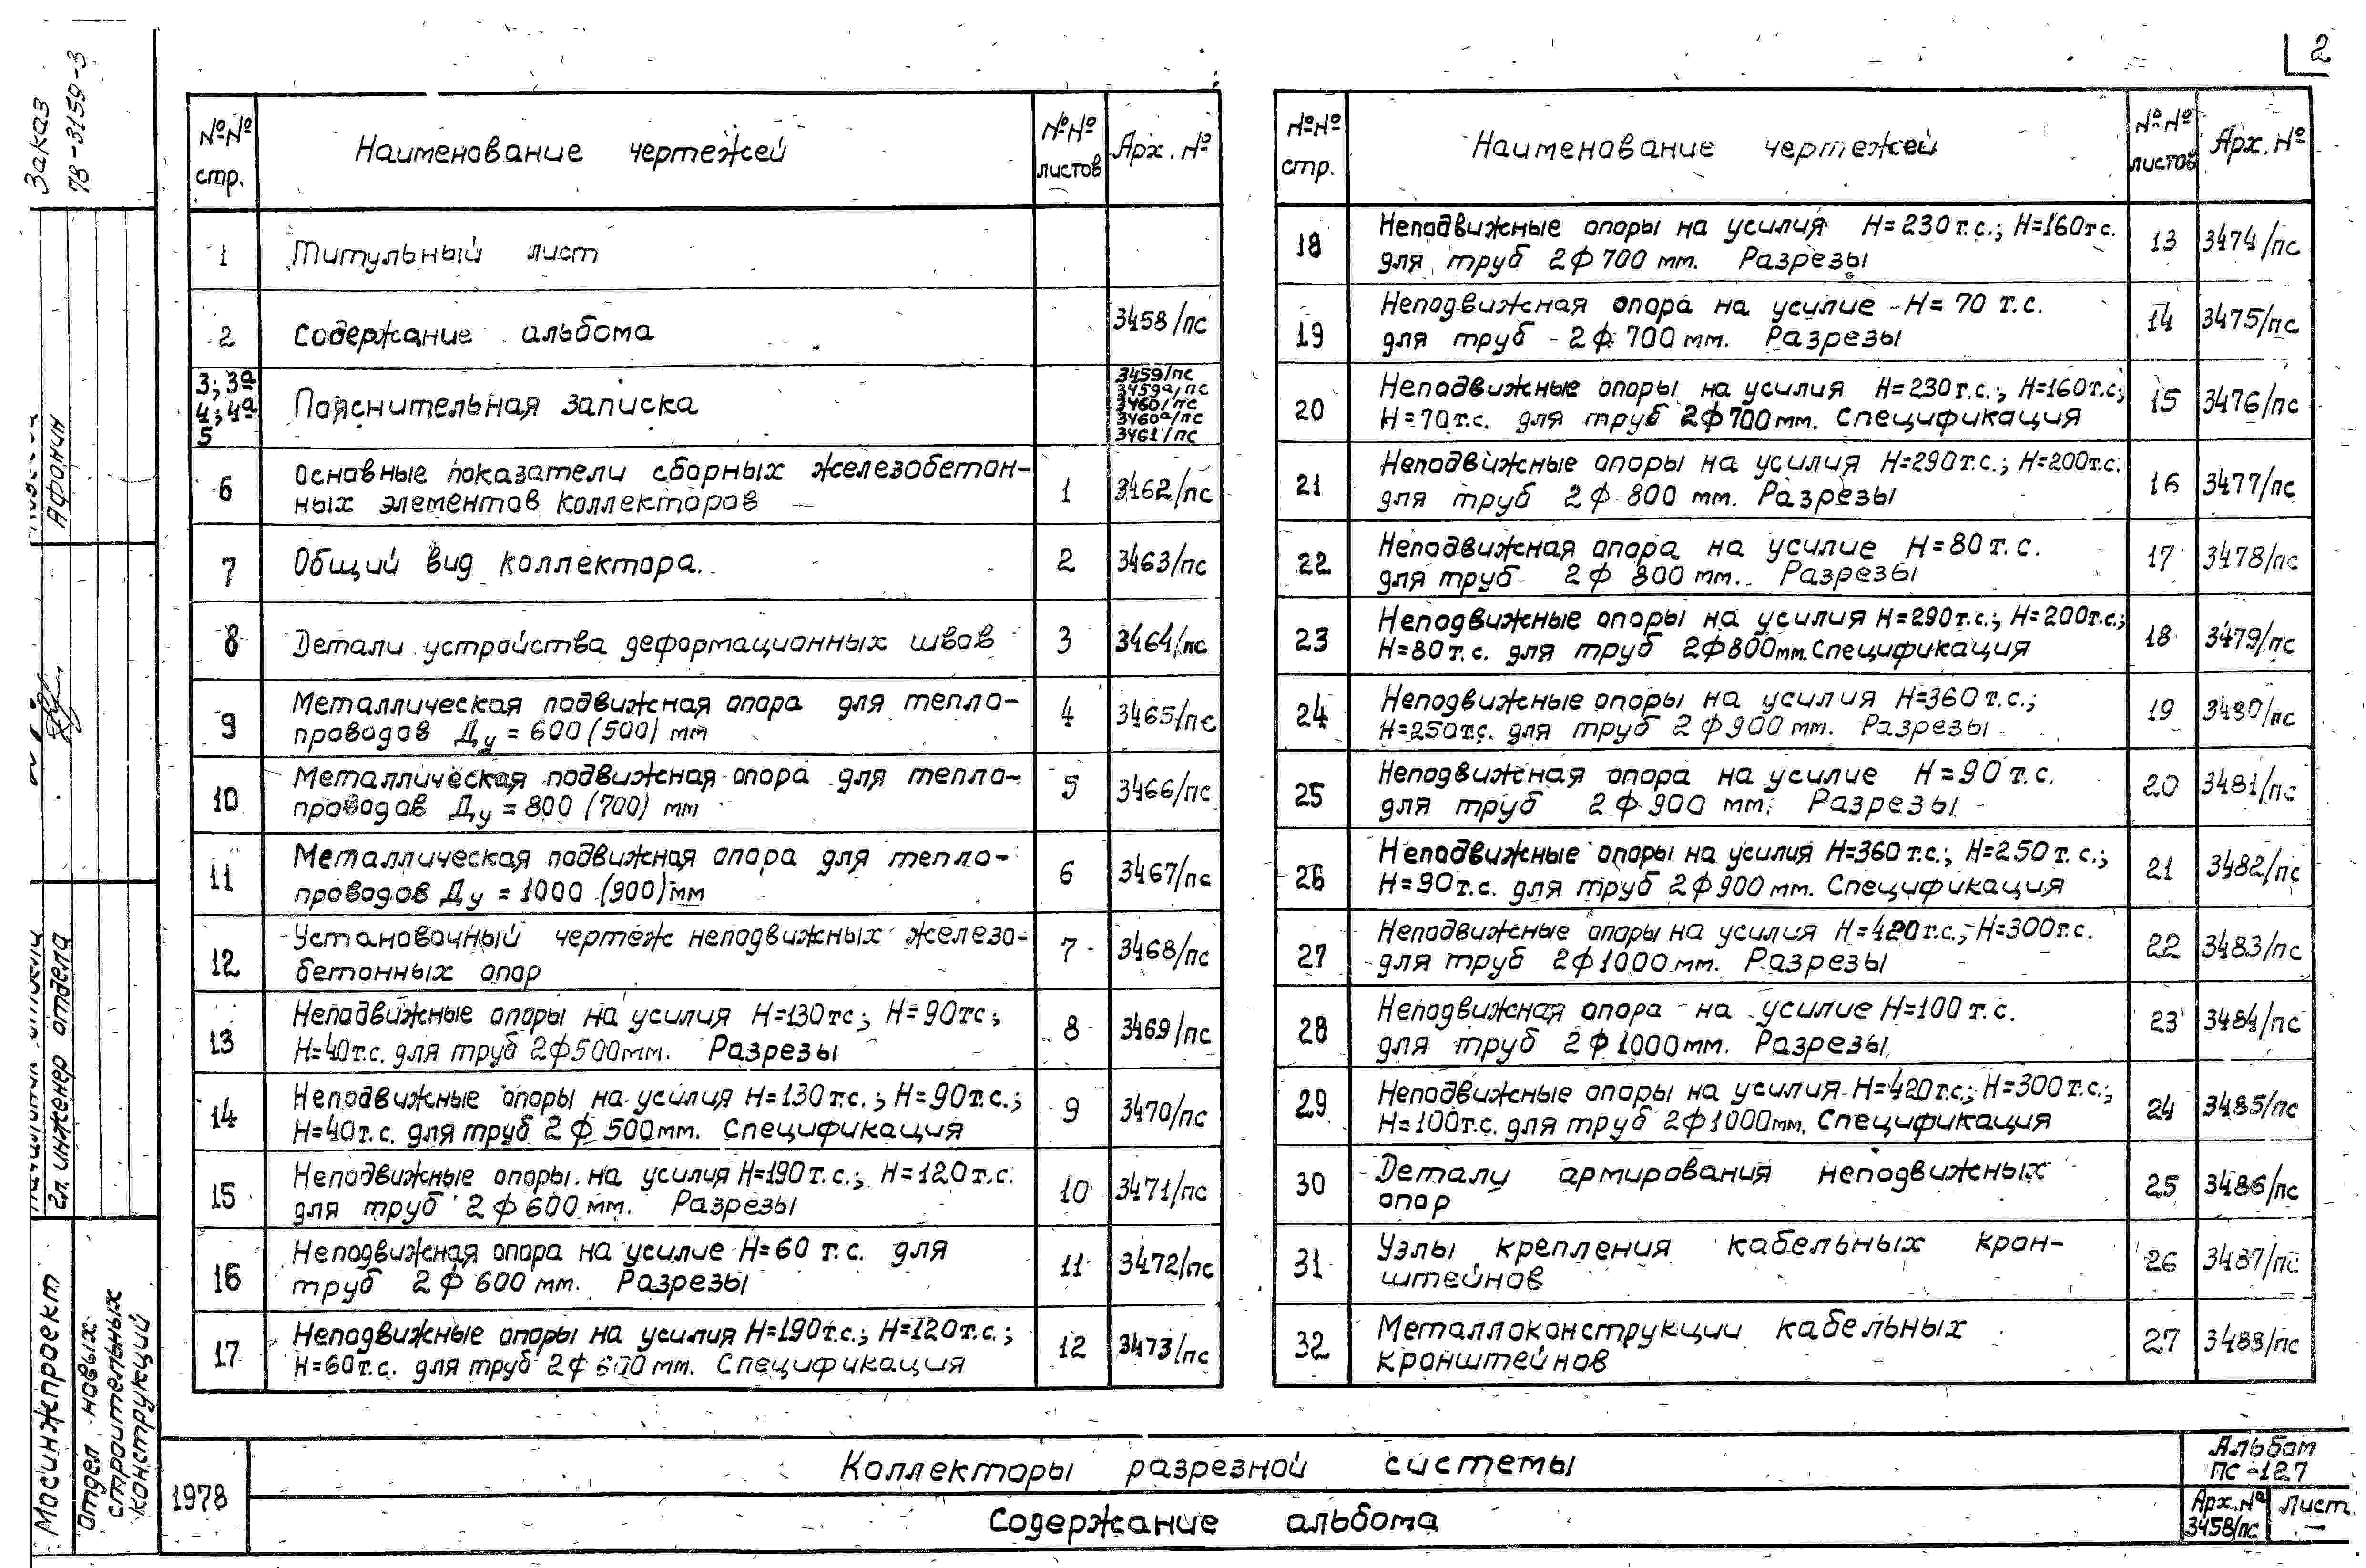 2
Заказ
78-3159-3
№№ стр. Наименование чертежей №№ листов Арх. №
1 Титульный лист
2 Содержание альбома 3458/пс
3; 3а
4; 4а
5
Пояснительная записка
3459/пс
3459а/пс
3460/пс
3460а/пс
3461/пс
6 Основные показатели сборных железобетон-
ных элементов коллекторов 1 3462/пс
7 Общий вид коллектора. 2 3463/пс
8 Детали устройства деформационных швов 3 3464/пс
9 Металлическая подвижная опора для тепло-
проводов Ду = 600 (500) мм 4 3465/пс
10 Металлическая подвижная опора для тепло-
проводов Ду = 800 (700) мм 5 3466/пс
11 Металлическая подвижная опора для тепло-
проводов Ду = 1000 (900) мм 6 3467/пс
12 Установочный чертеж неподвижных железо-
бетонных опор 7 3468/пс
13 Неподвижные опоры на усилия Н=130тс; Н=90тс;
Н=40т.с. для труб 2ф500мм. Разрезы 8 3469/пс
14 Неподвижные опоры на усилия Н=130т.с.; Н=90т.с.;
Н=40т.с. для труб 2ф 500мм. Спецификация 9 3470/пс
15 Неподвижные опоры на усилия Н=190т.с.; Н=120т.с.
для труб 2ф600мм. Разрезы 10 3471/пс
16 Неподвижная опора на усилие Н=60 т.с. для
труб 2ф600мм. Разрезы 11 3472/пс
17 Неподвижные опоры на усилия Н=190т.с.; Н=120т.с.;
Н=60т.с. для труб 2ф600мм. Спецификация 12 3473/пс
№№ стр. Наименование чертежей №№ листов Арх. №
18 Неподвижные опоры на усилия Н=230т.с.; Н=160тс.
для труб 2ф700мм. Разрезы 13 3474/пс
19 Неподвижная опора на усилие Н=70 т.с.
для труб 2ф700мм. Разрезы 14 3475/пс
20 Неподвижные опоры на усилия Н=230т.с.; Н=160т.с;
Н=70т.с. для труб 2ф700мм. Спецификация 15 3476/пс
21 Неподвижные опоры на усилия Н=290т.с.; Н=200т.с.
для труб 2ф800 мм. Разрезы 16 3477/пс
22 Неподвижная опора на усилие Н=80т.с.
для труб 2ф 800мм. Разрезы 17 3478/пс
23 Неподвижные опоры на усилия Н=290т.с.; Н=200т.с.;
Н=80т.с. для труб 2ф800мм. Спецификация 18 3479/пс
24 Неподвижные опоры на усилия Н=360т.с.;
Н=250т.с. для труб 2ф900мм. Разрезы 19 3480/пс
25 Неподвижная опора на усилие Н=90т.с.
для труб 2ф900 мм. Разрезы 20 3481/пс
26 Неподвижные опоры на усилия Н=360т.с.; Н=250т.с.;
Н=90т.с. для труб 2ф900мм. Спецификация 21 3482/пс
27 Неподвижные опоры на усилия Н=420т.с.; Н=300т.с.
для труб 2ф1000мм. Разрезы 22 3483/пс
28 Неподвижная опора на усилие Н=100т.с.
для труб 2ф1000мм. Разрезы 23 3484/пс
29 Неподвижные опоры на усилия Н=420т.с.; Н=300т.с.;
Н=100т.с. для труб 2ф1000мм. Спецификация 24 3485/пс
30 Детали армирования неподвижных
опор 25 3486/пс
31 Узлы крепления кабельных крон-
штейнов 26 3487/пс
32 Металлоконструкции кабельных
кронштейнов 27 3488/пс
Афонин
Гл. инженер отдела
Мосинжпроект
Отдел новых
строительных
конструкций
1978
Коллекторы разрезной системы
Содержание альбома
Альбом
ПС-127
Арх. №
3458/пс
Лист
—